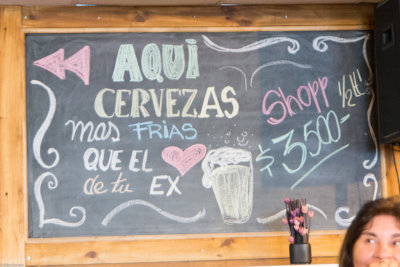 AQUÍ
CERVEZAS
mas FRIAS
QUE EL
de tu EX
SHOPP 1/2 lt!
$3.500.-